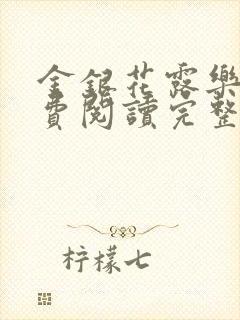 金銀花露樂
費閱讀完整
柠檬七